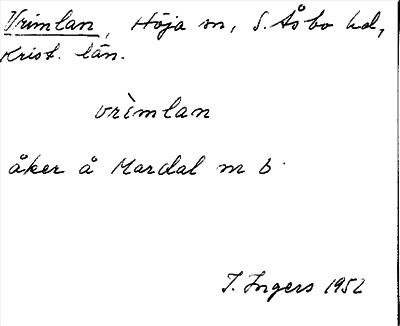 Vrimlan, Höja sn, S. Åsbo hd,
Krist. län.
vrìmlan
åker å Mardal m b
I. Ingers 1952